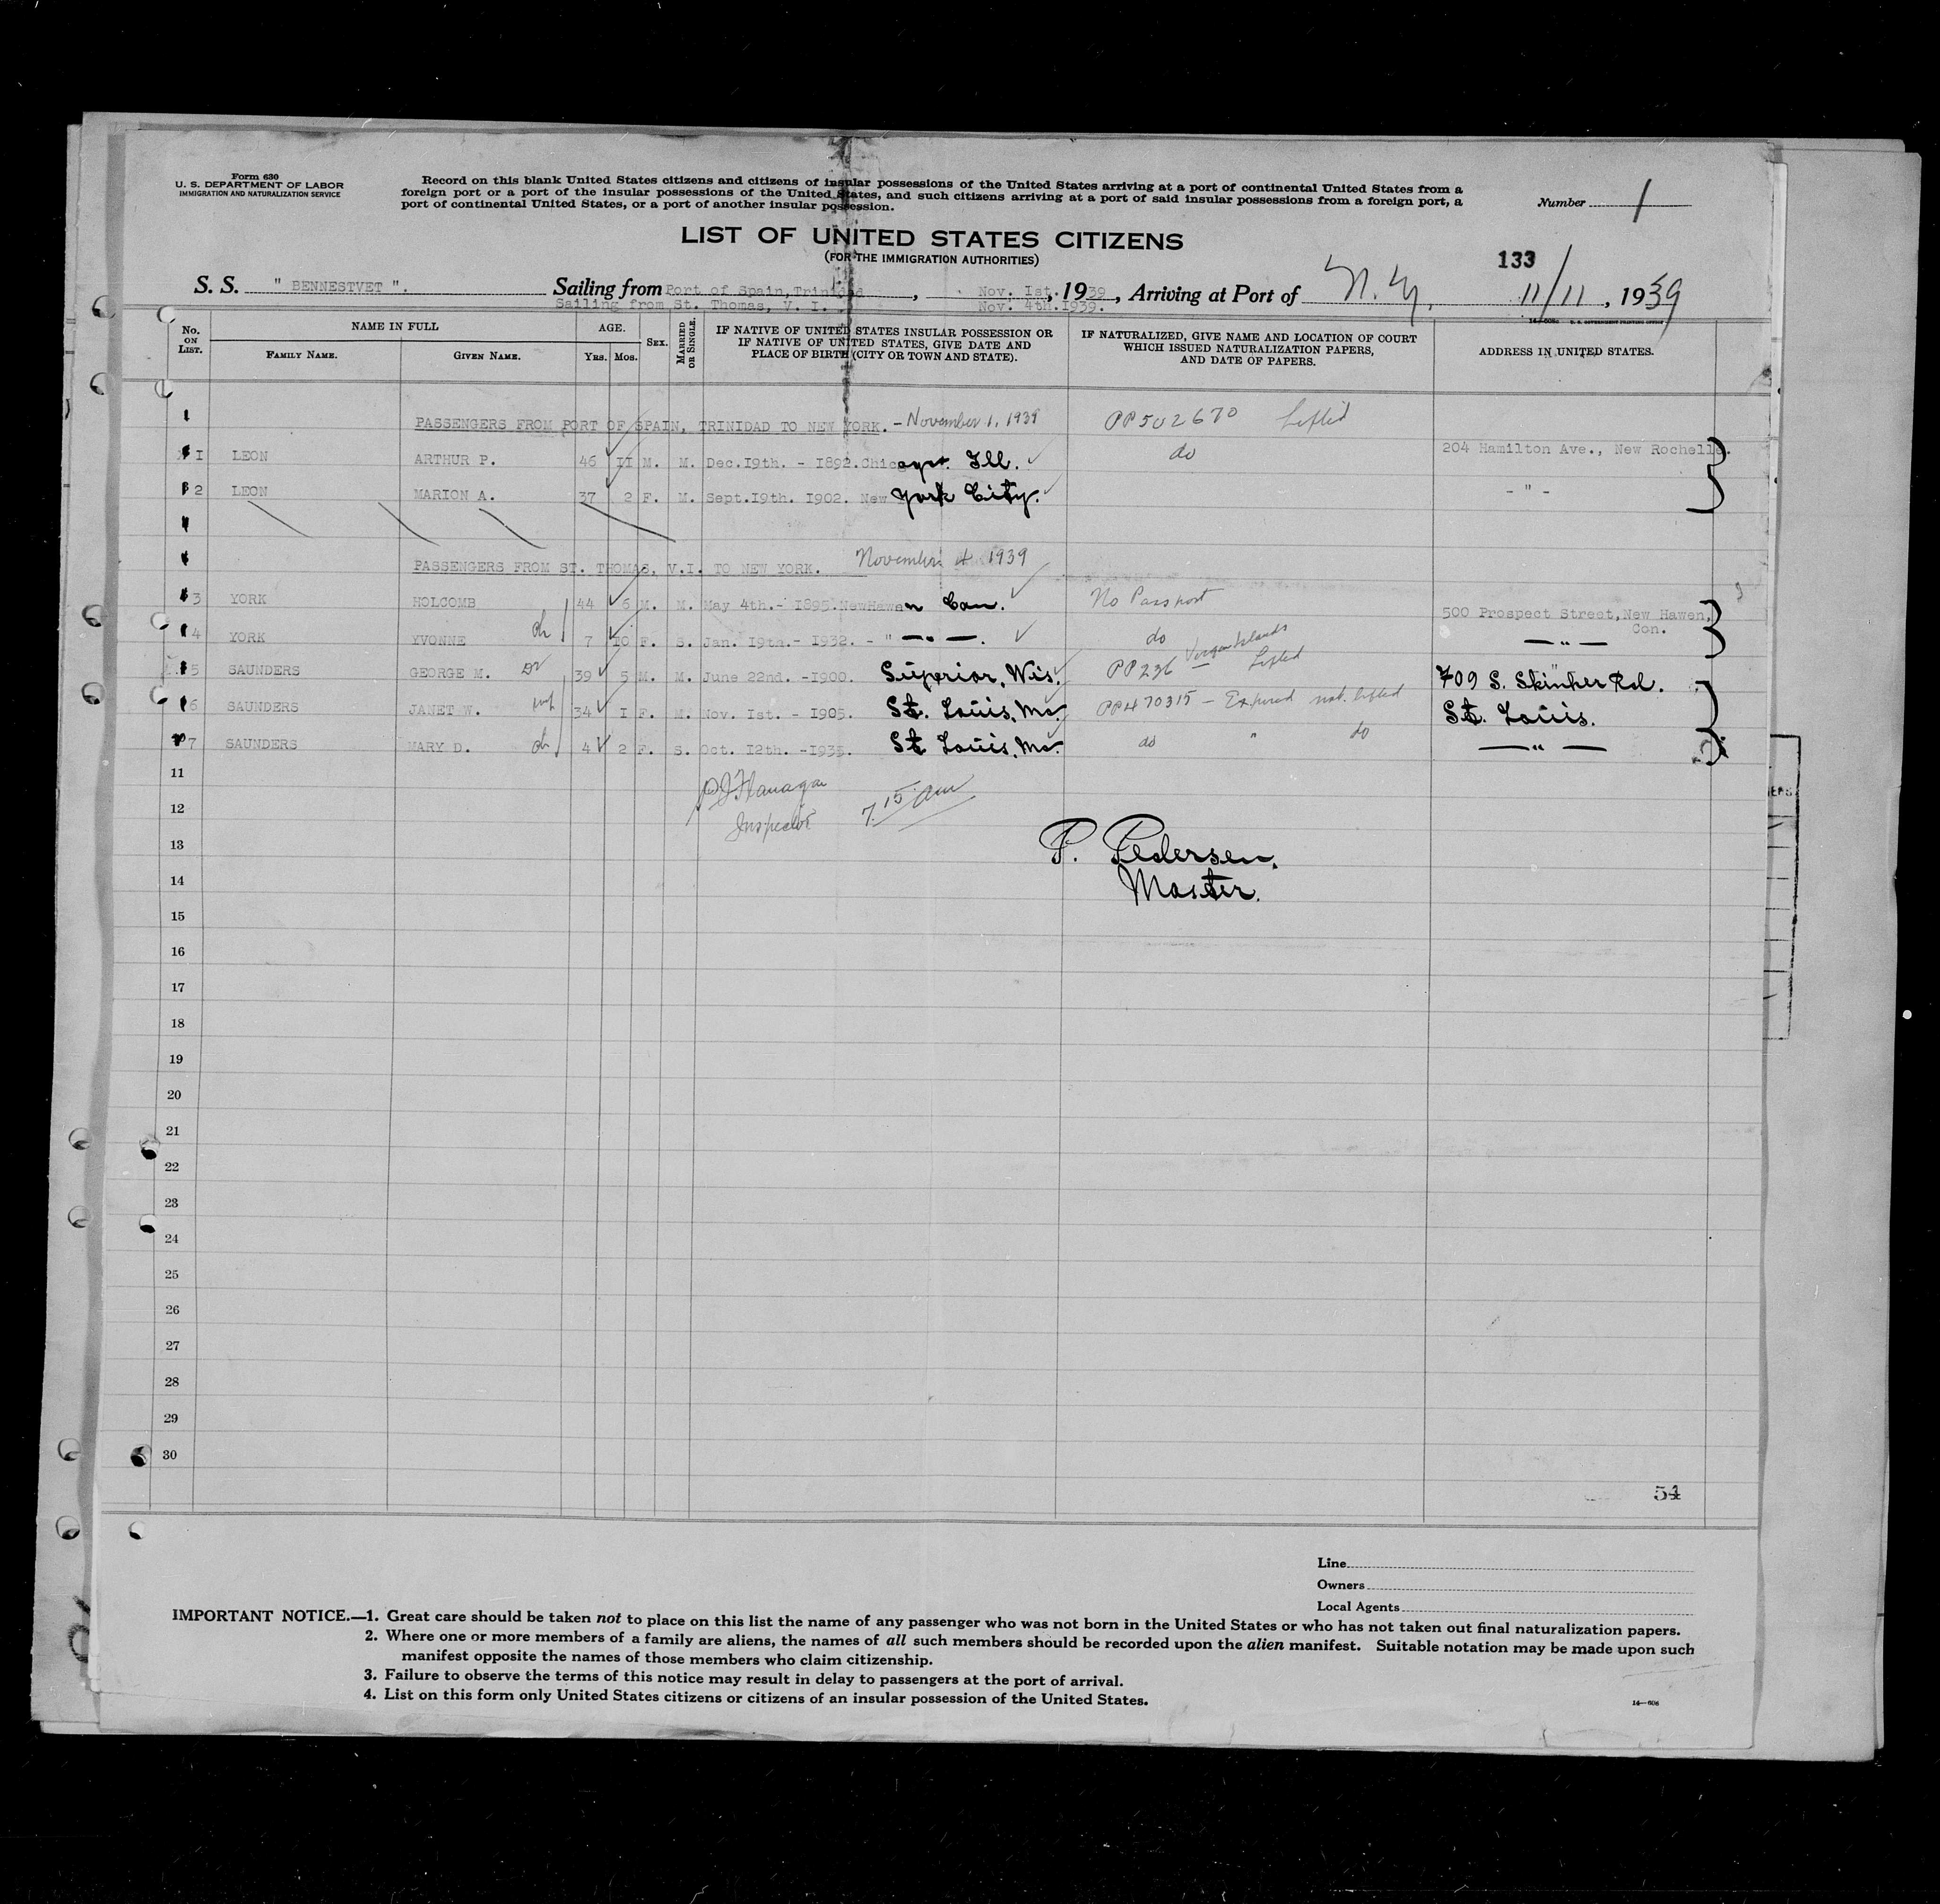 Form 630
U. S. DEPARTMENT OF LABOR
IMMIGRATION AND NATURALIZATION SERVICE
Record on this blank United States citizens and citizens of insular possessions of the United States arriving at a port of continental United States from a
foreign port or a port of the insular possessions of the United States, and such citizens arriving at a port of said insular possessions from a foreign port, a
port of continental United States, or a port of another insular possession.
Number 1
LIST OF UNITED STATES CITIZENS
(FOR THE IMMIGRATION AUTHORITIES)
133
S. S. " BENNESTVET ". Sailing from Port of Spain, Trinidad, Nov. Ist., 1939, Arriving at Port of N.Y. 11/11, 1939
Sailing from St. Thomas, V. I. Nov. 4th.1939.
No. ON LIST. NAME IN FULL FAMILY NAME. GIVEN NAME. AGE. YRS. MOS. SEX. MARRIED OR SINGLE. IF NATIVE OF UNITED STATES INSULAR POSSESSION OR IF NATIVE OF UNITED STATES, GIVE DATE AND PLACE OF BIRTH (CITY OR TOWN AND STATE). IF NATURALIZED, GIVE NAME AND LOCATION OF COURT WHICH ISSUED NATURALIZATION PAPERS, AND DATE OF PAPERS. ADDRESS IN UNITED STATES.
1 PASSENGERS FROM PORT OF SPAIN, TRINIDAD TO NEW YORK. - November 1, 1939 PP502670 Lifted
1 LEON ARTHUR P. 46 II M. M. Dec.I9th. - I892. Chicago. Ill. do 204 Hamilton Ave., New Rochelle.
2 LEON MARION A. 37 2 F. M. Sept.I9th. I902. New York City. - " -
PASSENGERS FROM ST. THOMAS, V.I. TO NEW YORK. November 4 1939
3 YORK HOLCOMB 44 6 M. M. May 4th.- I895. NewHawen Con. No Passport 500 Prospect Street, New Hawen, Con.
4 YORK YVONNE ch 7 IO F. S. Jan. I9th.- I932. - " — " —. do — " —
5 SAUNDERS GEORGE M. 39 5 M. M. June 22nd. -I900. Superior, Wis. PP236 Virgin Islands Lifted 709 S. Skinker Rd.
6 SAUNDERS JANET W. wf 34 I F. M. Nov. Ist. - I905. St. Louis, Mo. PP470315 - Expired not lifted St. Louis.
7 SAUNDERS MARY D. ch 4 2 F. S. Oct. I2th. -I935. St Louis, Mo. do " do — " —
11
12
13
14
15
16
17
18
19
20
21
22
23
24
25
26
27
28
29
30
PJ Flanagan
Inspector
7.15 am
P. Pedersen.
Master.
54
Line
Owners
Local Agents
IMPORTANT NOTICE.—1. Great care should be taken not to place on this list the name of any passenger who was not born in the United States or who has not taken out final naturalization papers.
2. Where one or more members of a family are aliens, the names of all such members should be recorded upon the alien manifest. Suitable notation may be made upon such
manifest opposite the names of those members who claim citizenship.
3. Failure to observe the terms of this notice may result in delay to passengers at the port of arrival.
4. List on this form only United States citizens or citizens of an insular possession of the United States.
14—608